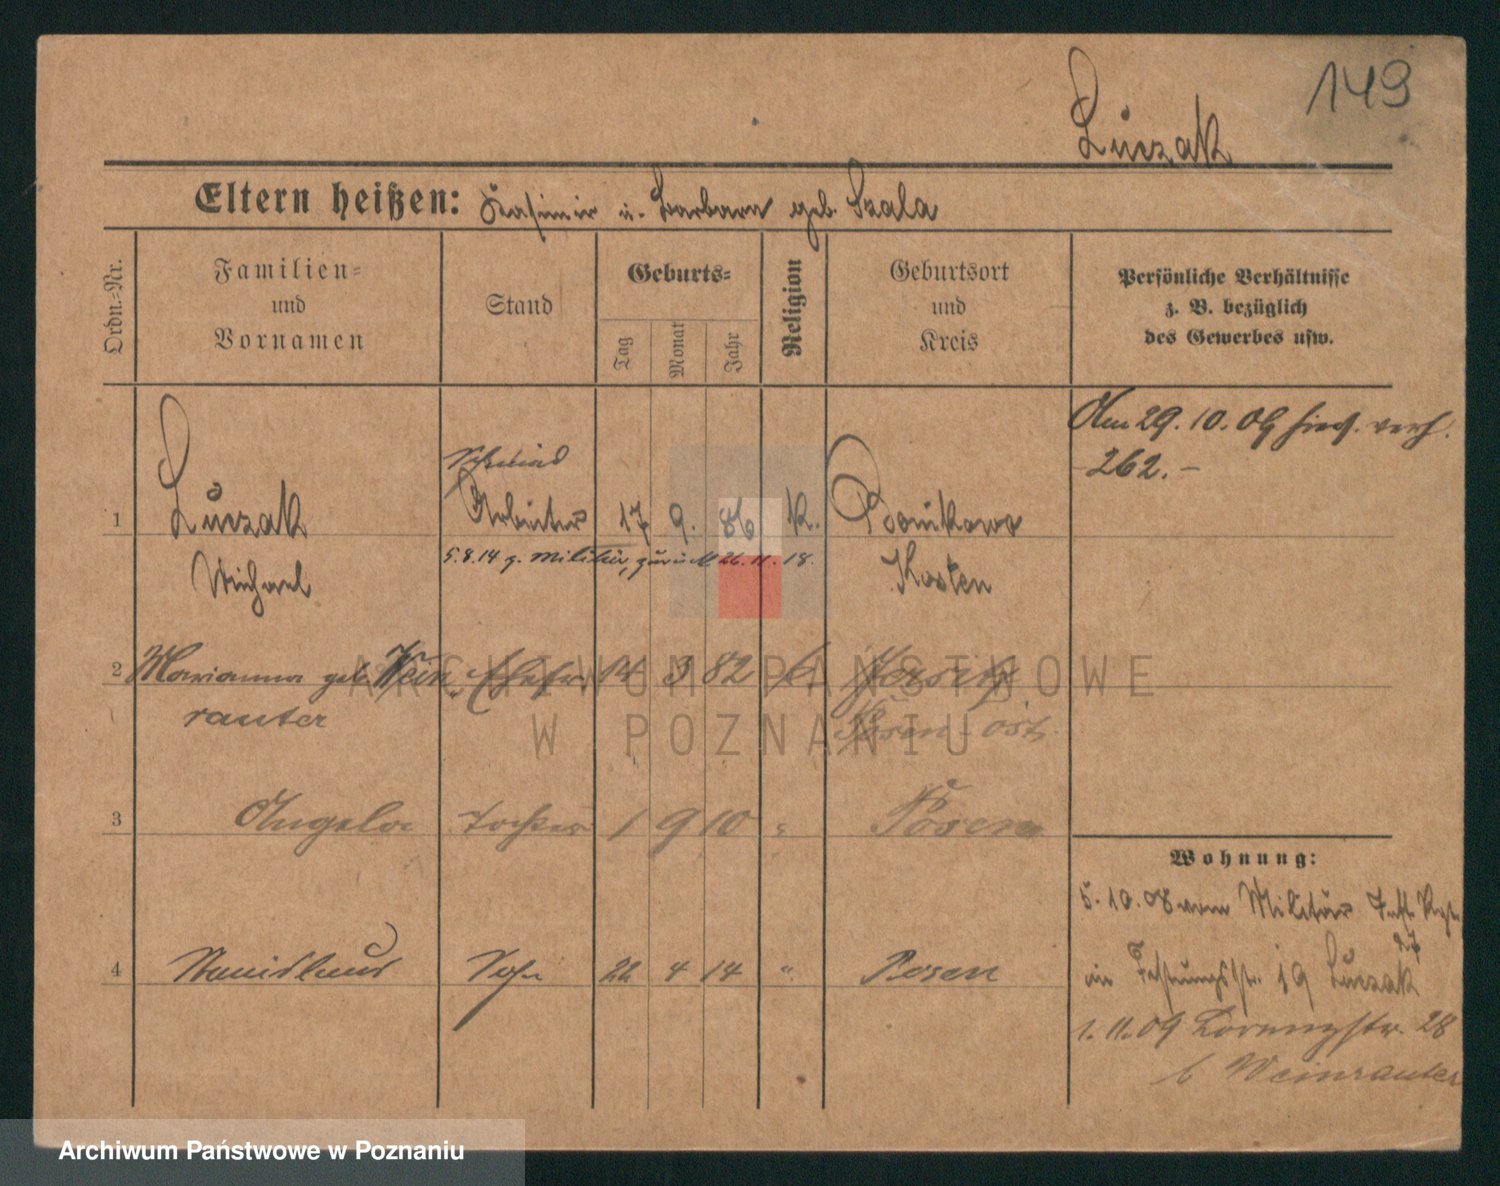 149
Luczak
Eltern heißen: Kasimir u. Barbara geb. Szala
Ordn.-Nr.
Familien-
und
Vornamen
Stand
Geburts-
Tag
Monat
Jahr
Religion
Geburtsort
und
Kreis
Persönliche Verhältnisse
z. B. bezüglich
des Gewerbes usw.
Am 29. 10. 09 hies. verh.
262.-
Schmied
1 Luczak Arbeiter 17 9. 86 K. Bonikowo
5.8.14 z. Militär, zurück 26.11.18.
Michael Kosten
2 Marianna geb. Wein- Ehefr. 14 3 82 k. Jersitz
rauter Posen-ost.
3 Angela Tochter 1 9 10 " Posen
4 Stanislaus Sohn 22 4 14 " Posen
Wohnung:
5. 10. 08 vom Militär Inft. Rgt.
in Festungsstr. 19 Luczak
1. 11. 09 28
b Weinrauter
ARCHIWUM PAŃSTWOWE
W POZNANIU
Archiwum Państwowe w Poznaniu